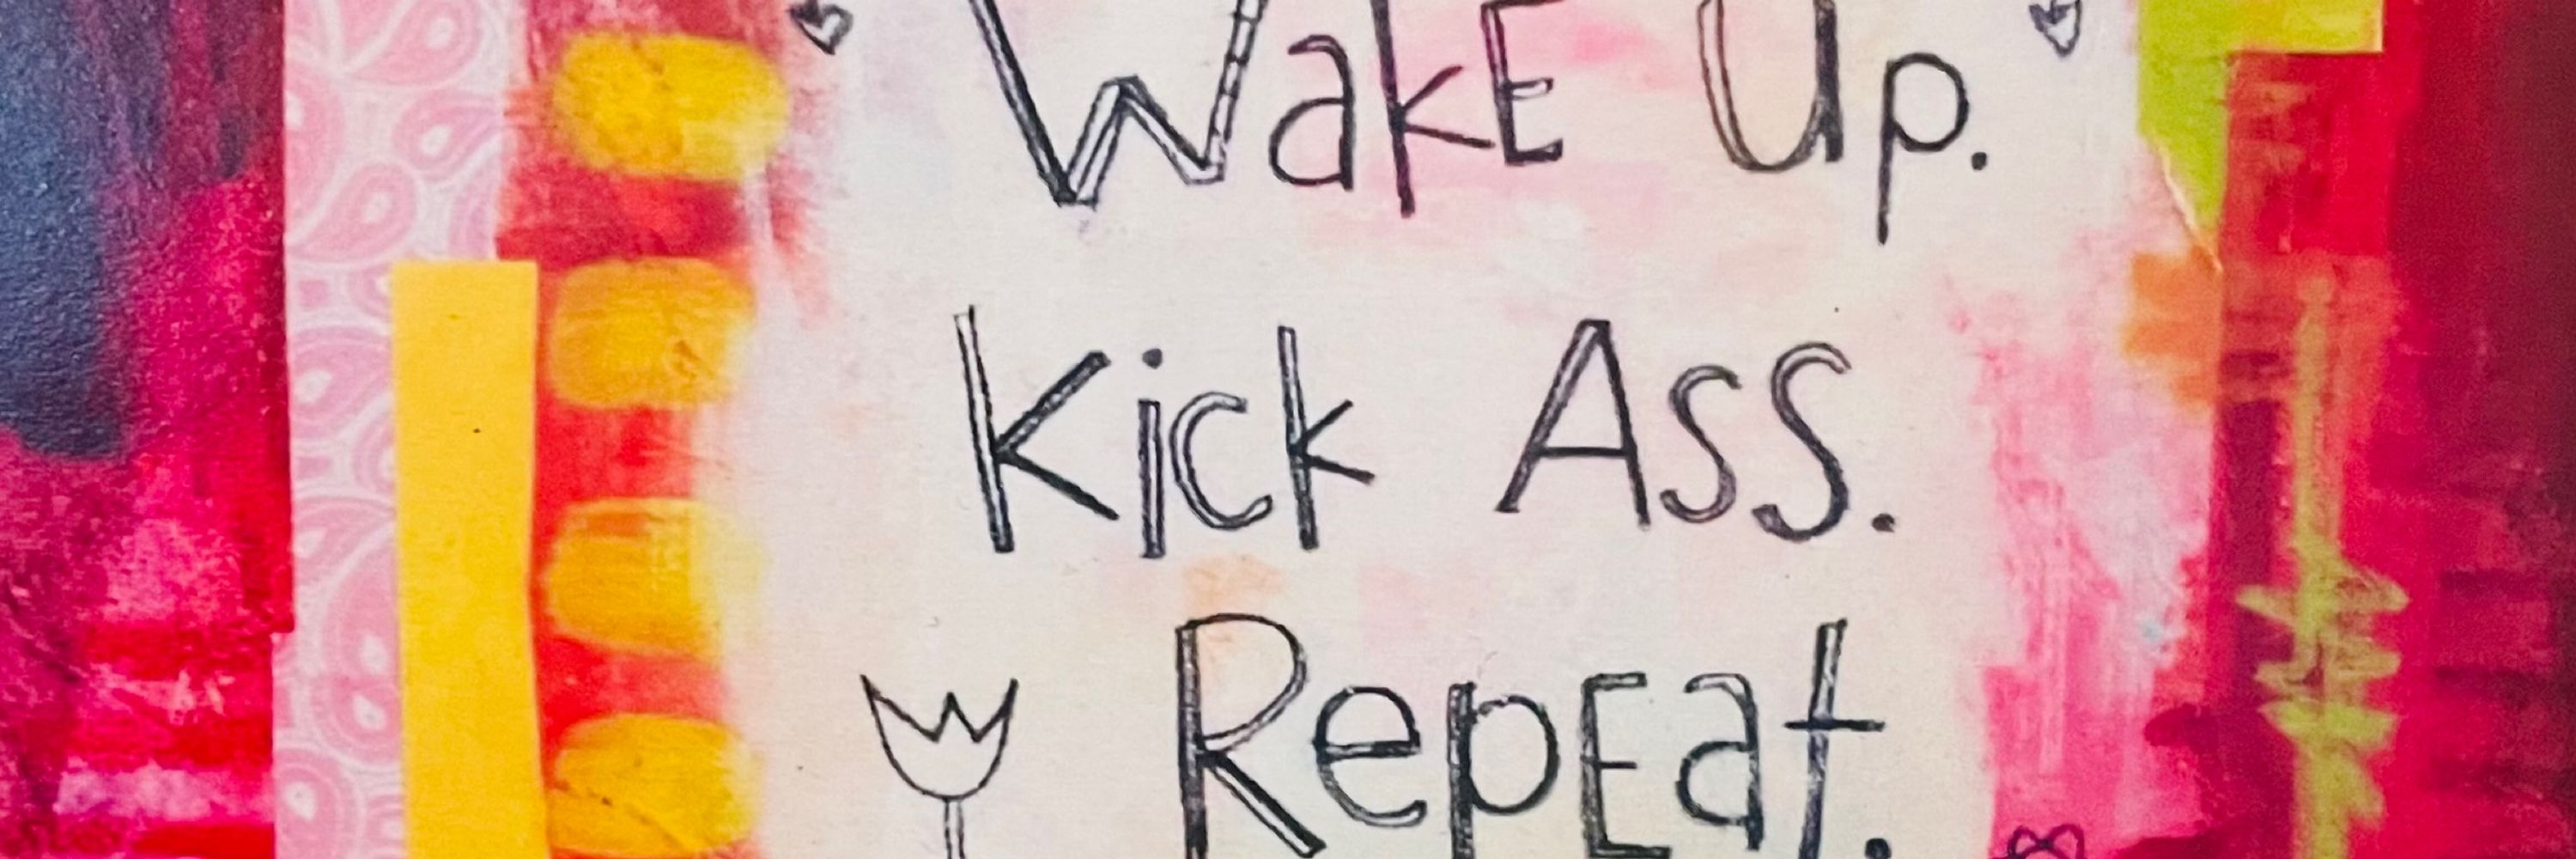 Wake Up.
Kick Ass.
Repeat.